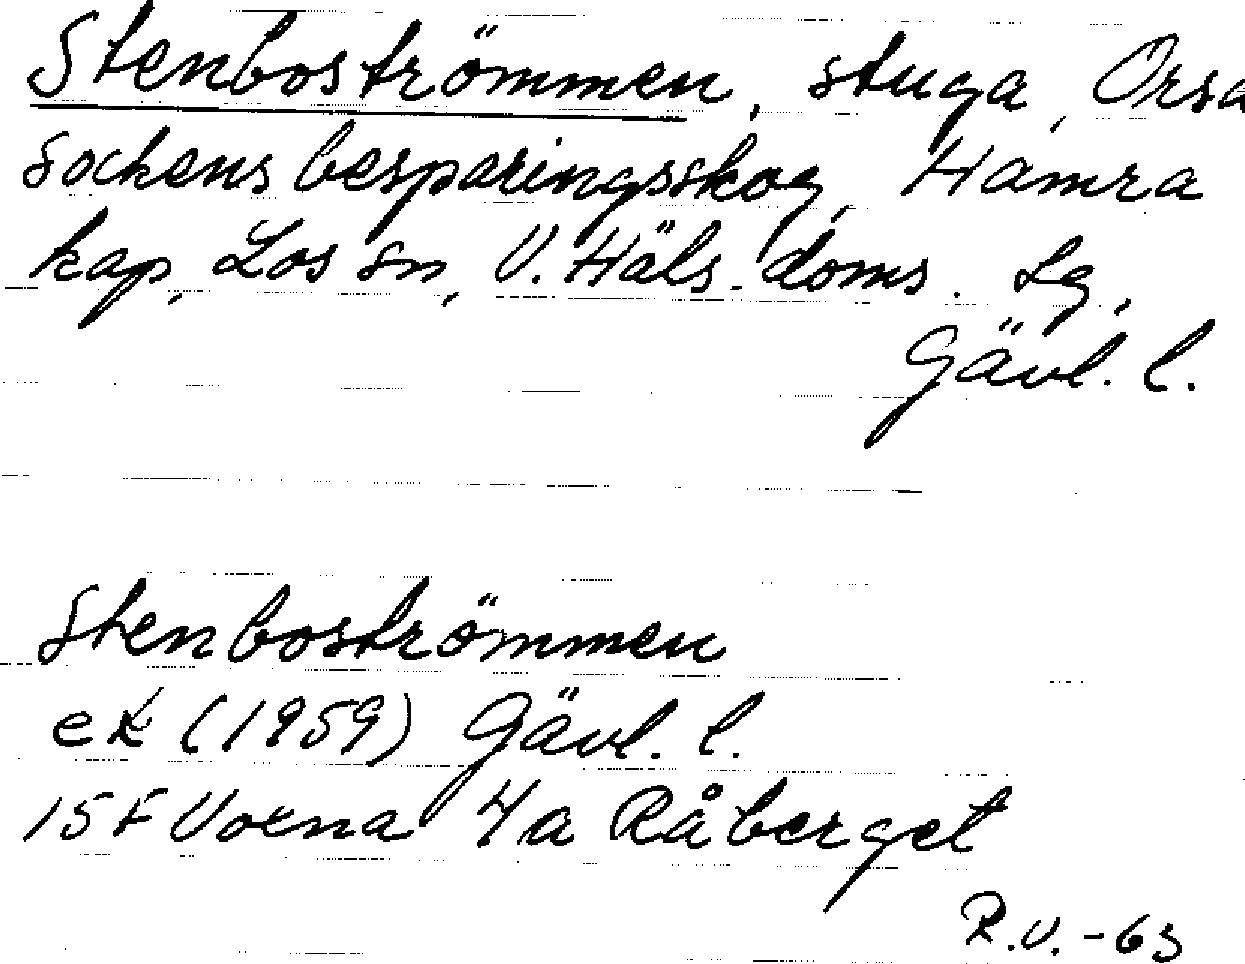 Stenboströmmen, stuga, Orsa
sockens besparingsskog, Hamra
kap, Los sn, V. Häls. doms. lg,
Gävl. l.
Stenboströmmen
ek (1959) Gävl. l.
15F Voxna 4a Råberget
R.V. -63